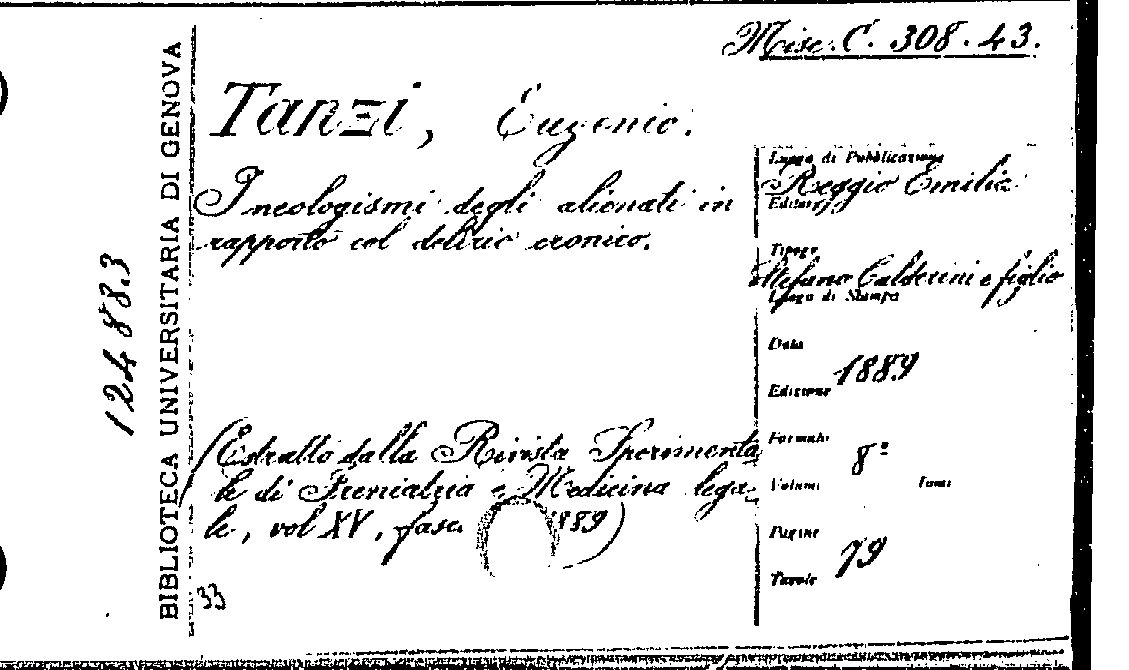 Misc. C. 308. 43.
Tanzi, Eugenio.
I neologismi degli alienati in
rapporto col delirio cronico.
(Estratto dalla Rivista Sperimenta
le di Freniatria e Medicina lega-
le, vol XV, fasc. 1889)
33
Luogo di Pubblicazione
Reggio Emilia
Editore
Tipogr.
Stefano Calderini e figlio
Luogo di Stampa
Data
1889
Edizione
Formato
8º
Volumi Tomi
Pagine
79
Tavole
BIBLIOTECA UNIVERSITARIA DI GENOVA
12488.3